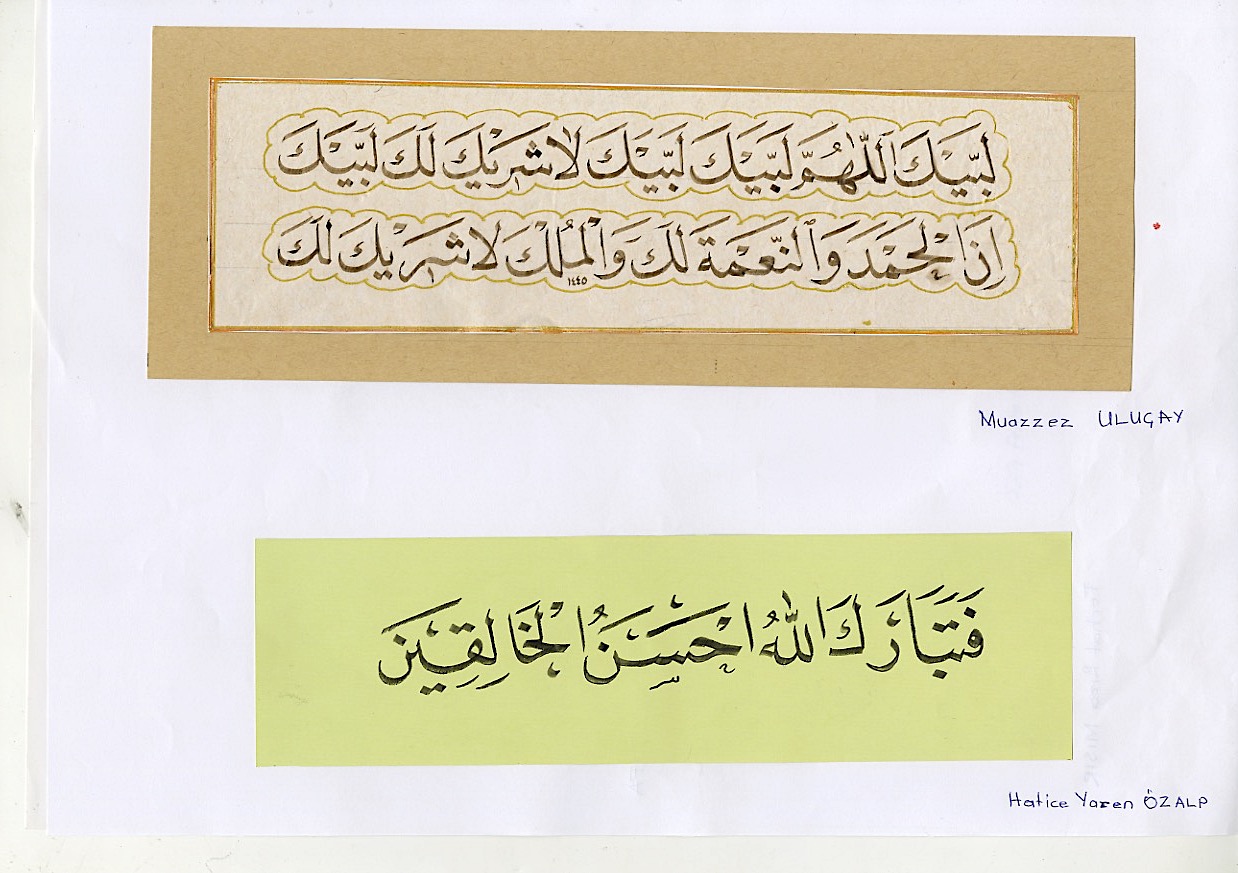 لَبَّيْكَ اَللّٰهُمَّ لَبَّيْكَ لَبَّيْكَ لَا شَرِيْكَ لَكَ لَبَّيْكَ
اِنَّ الْحَمْدَ وَالنِّعْمَةَ لَكَ وَالْمُلْكَ لَا شَرِيْكَ لَكَ
١٤٤٥
Muazzez ULUÇAY
فَتَبَارَكَ اللّٰهُ اَحْسَنُ الْخَالِقِينَ
Hatice Yaren ÖZALP